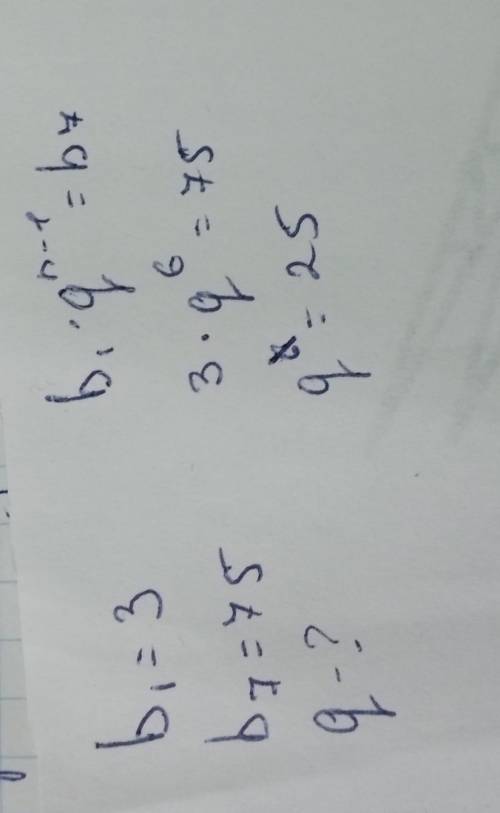 b₁ = 3
b₇ = 75
q - ?
b₁ · qⁿ⁻¹ = b₇
3 · q⁶ = 75
q = 25